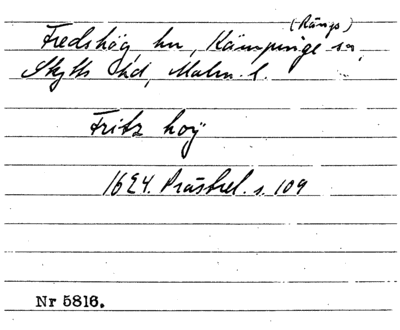 (Rängs)
Fredshög hn, Kämpinge sn,
Skytts hd, Malm. l.
Fritz hoÿ
1624. Prästrel. s. 109
Nr 5816.